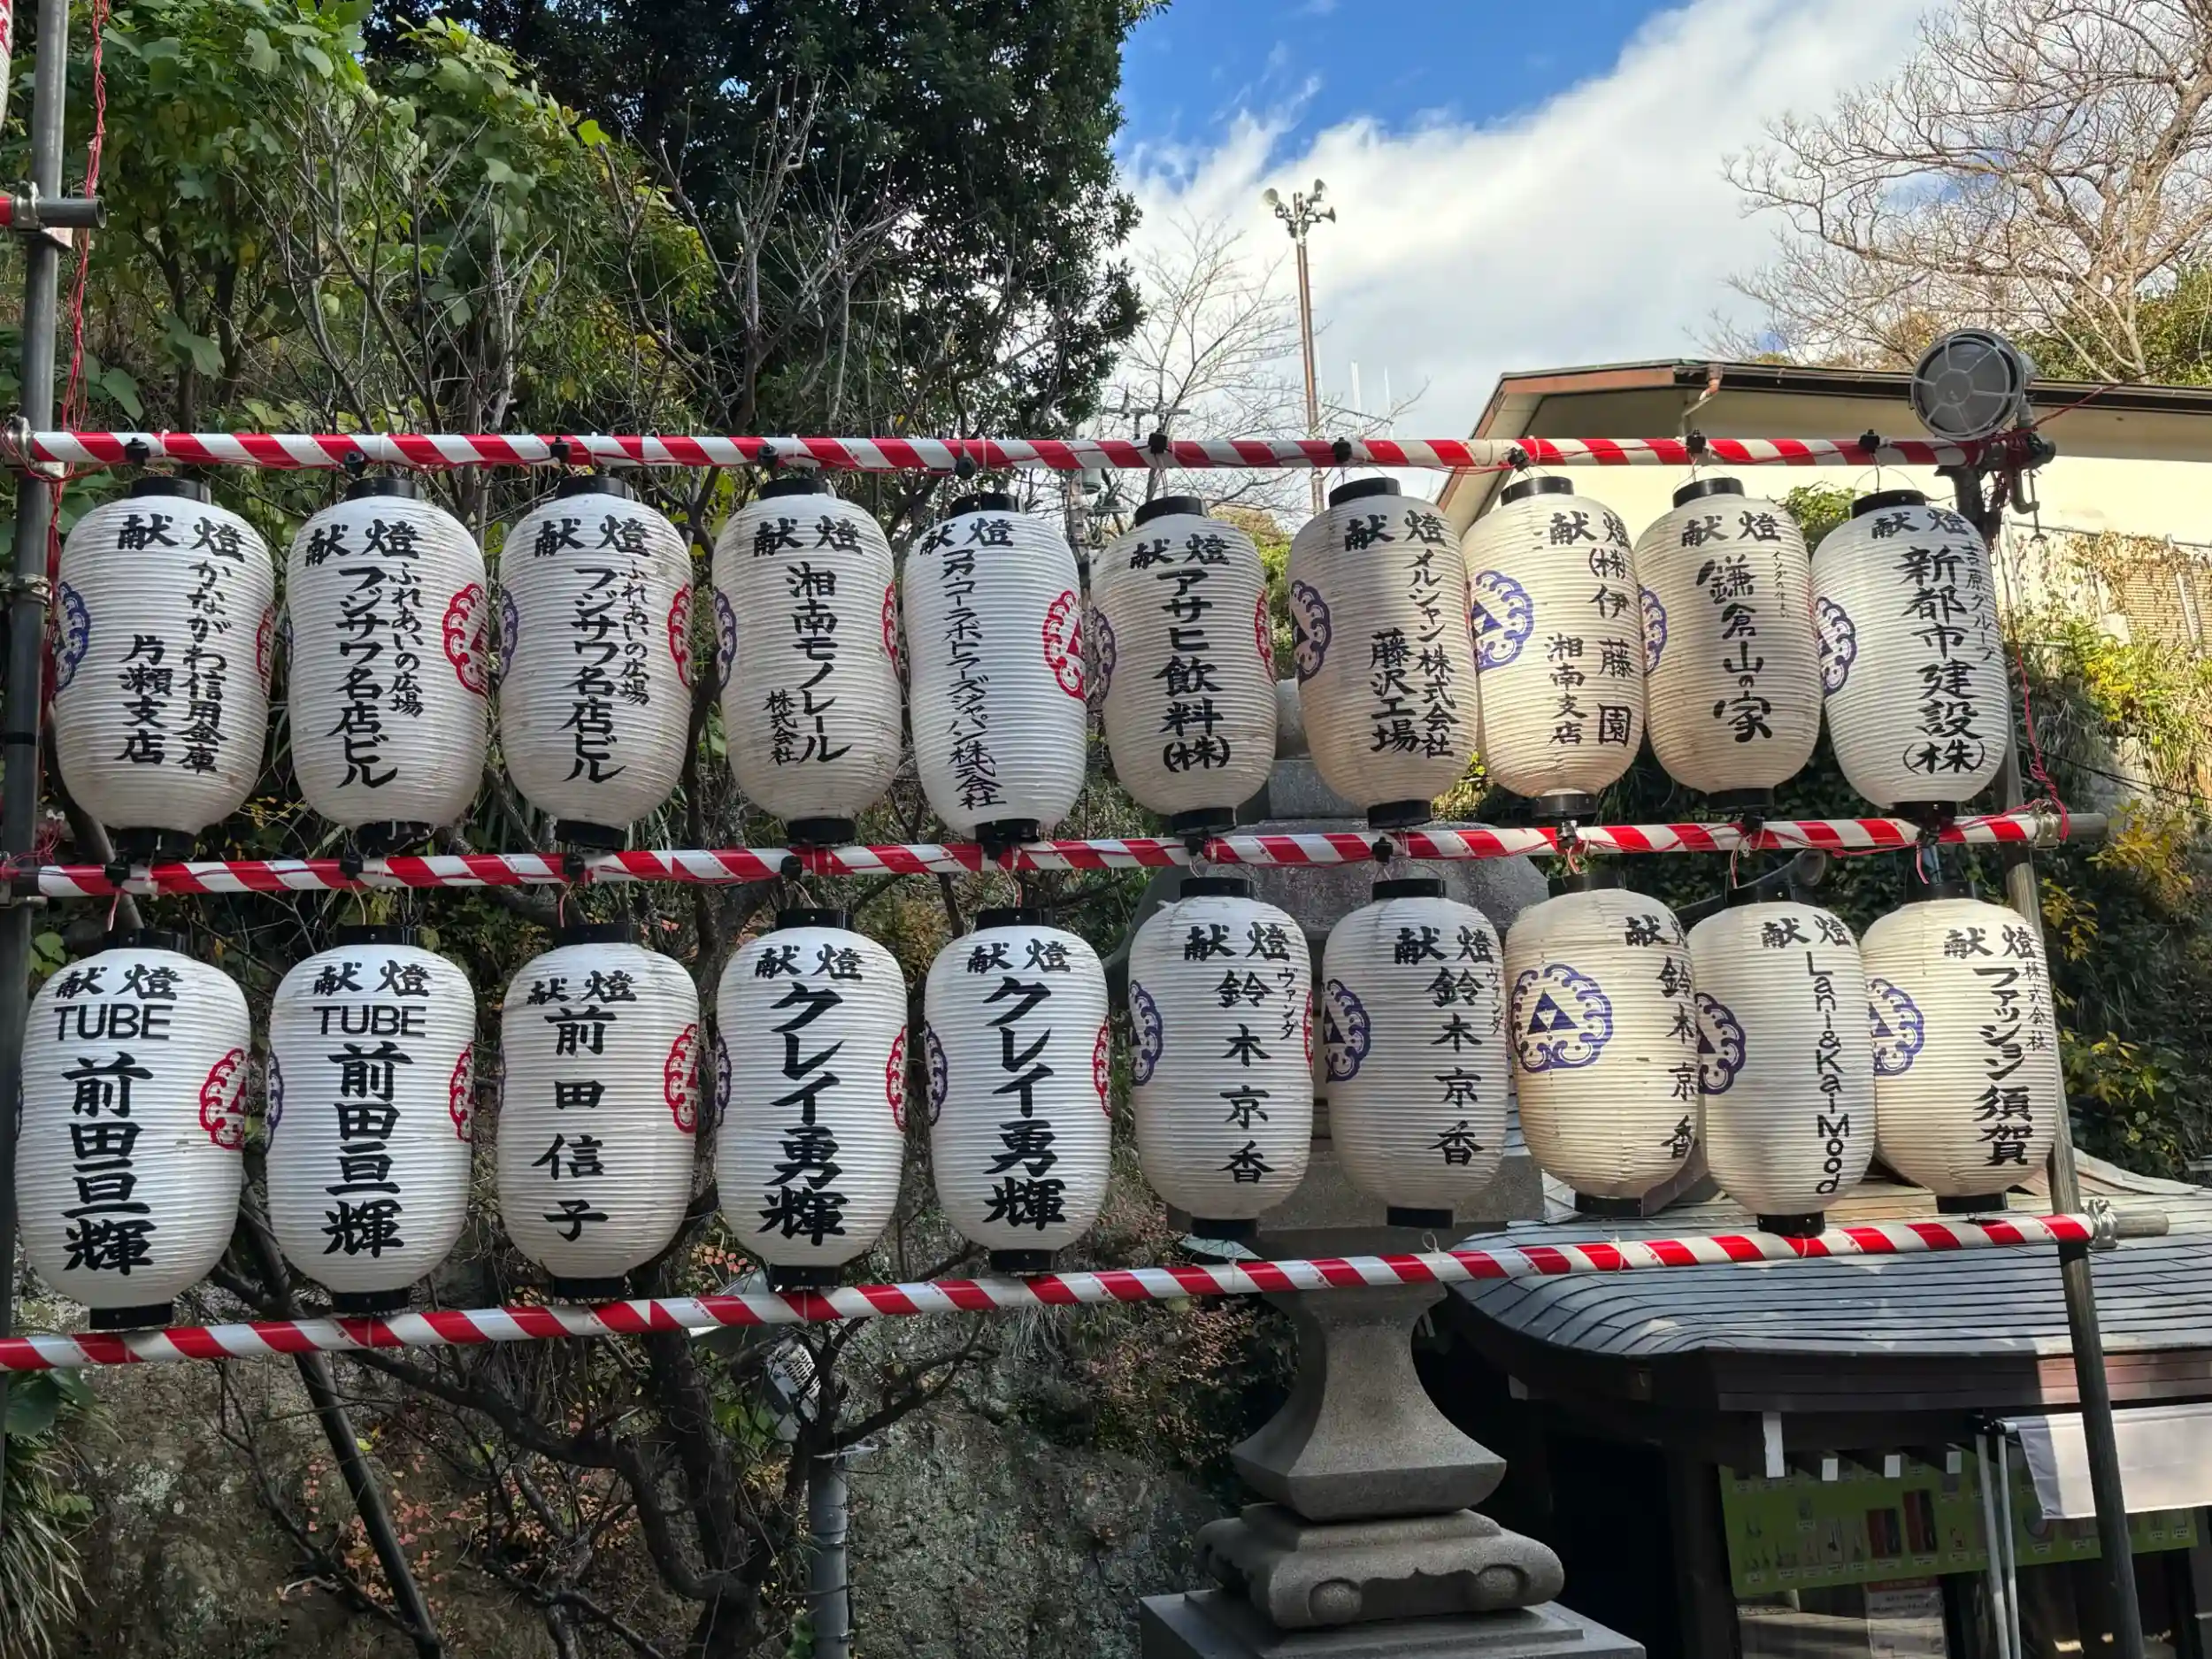 献燈
かながわ信用金庫
片瀬支店
献燈
ふれあいの広場
フジサワ名店ビル
献燈
ふれあいの広場
フジサワ名店ビル
献燈
湘南モノレール
株式会社
献燈
コカ・コーラボトラーズジャパン株式会社
献燈
アサヒ飲料(株)
献燈
メルシャン株式会社
藤沢工場
献燈
(株)伊藤園
湘南支店
献燈
鎌倉山の家
献燈
吉原グループ
新都市建設(株)
献燈
TUBE
前田亘輝
献燈
TUBE
前田亘輝
献燈
前田信子
献燈
クレイ勇輝
献燈
クレイ勇輝
献燈
ヴァンダ
鈴木京香
献燈
ヴァンダ
鈴木京香
献燈
鈴木京香
献燈
Lani&Kai Mood
献燈
株式会社
ファッション須賀